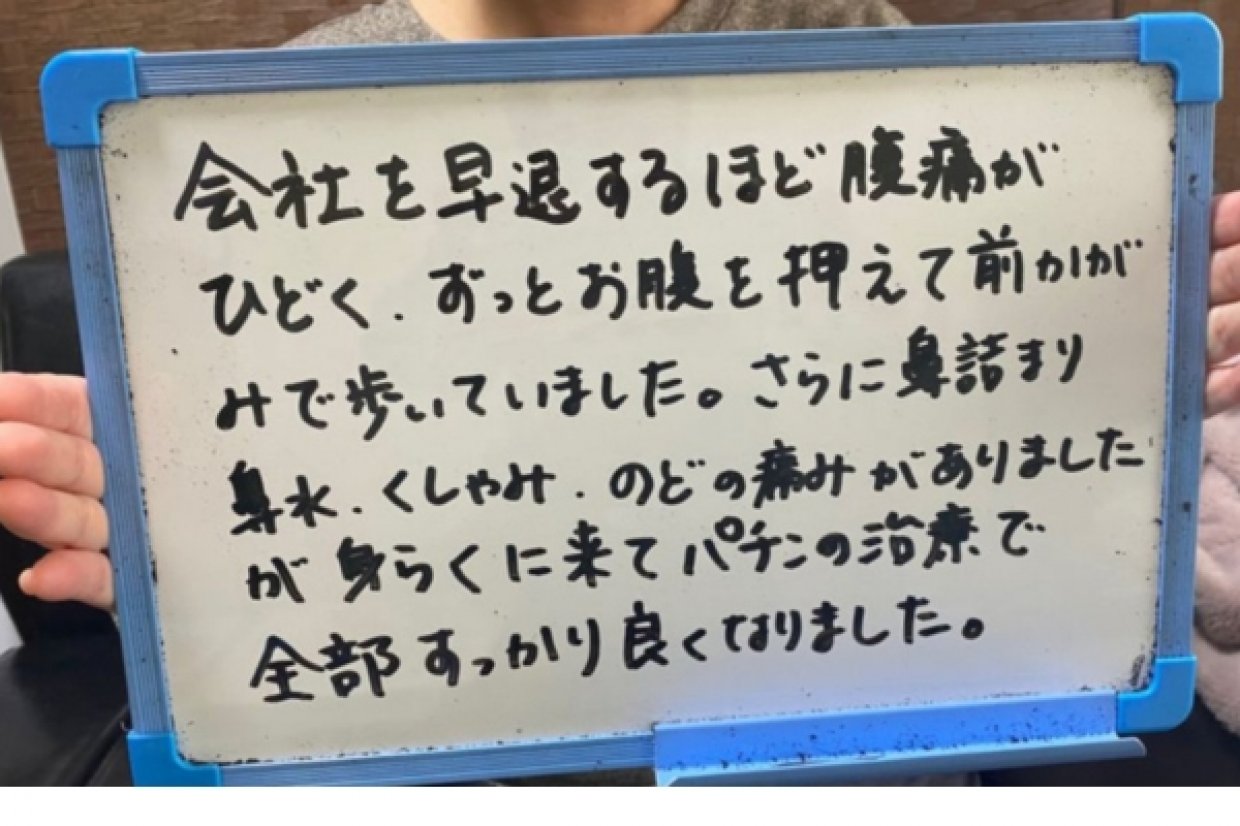 会社を早退するほど腹痛が
ひどく．ずっとお腹を押えて前かが
みで歩いていました。さらに鼻詰まり
鼻水．くしゃみ．のどの痛みがありました
が身らくに来てパチンの治療で
全部すっかり良くなりました。